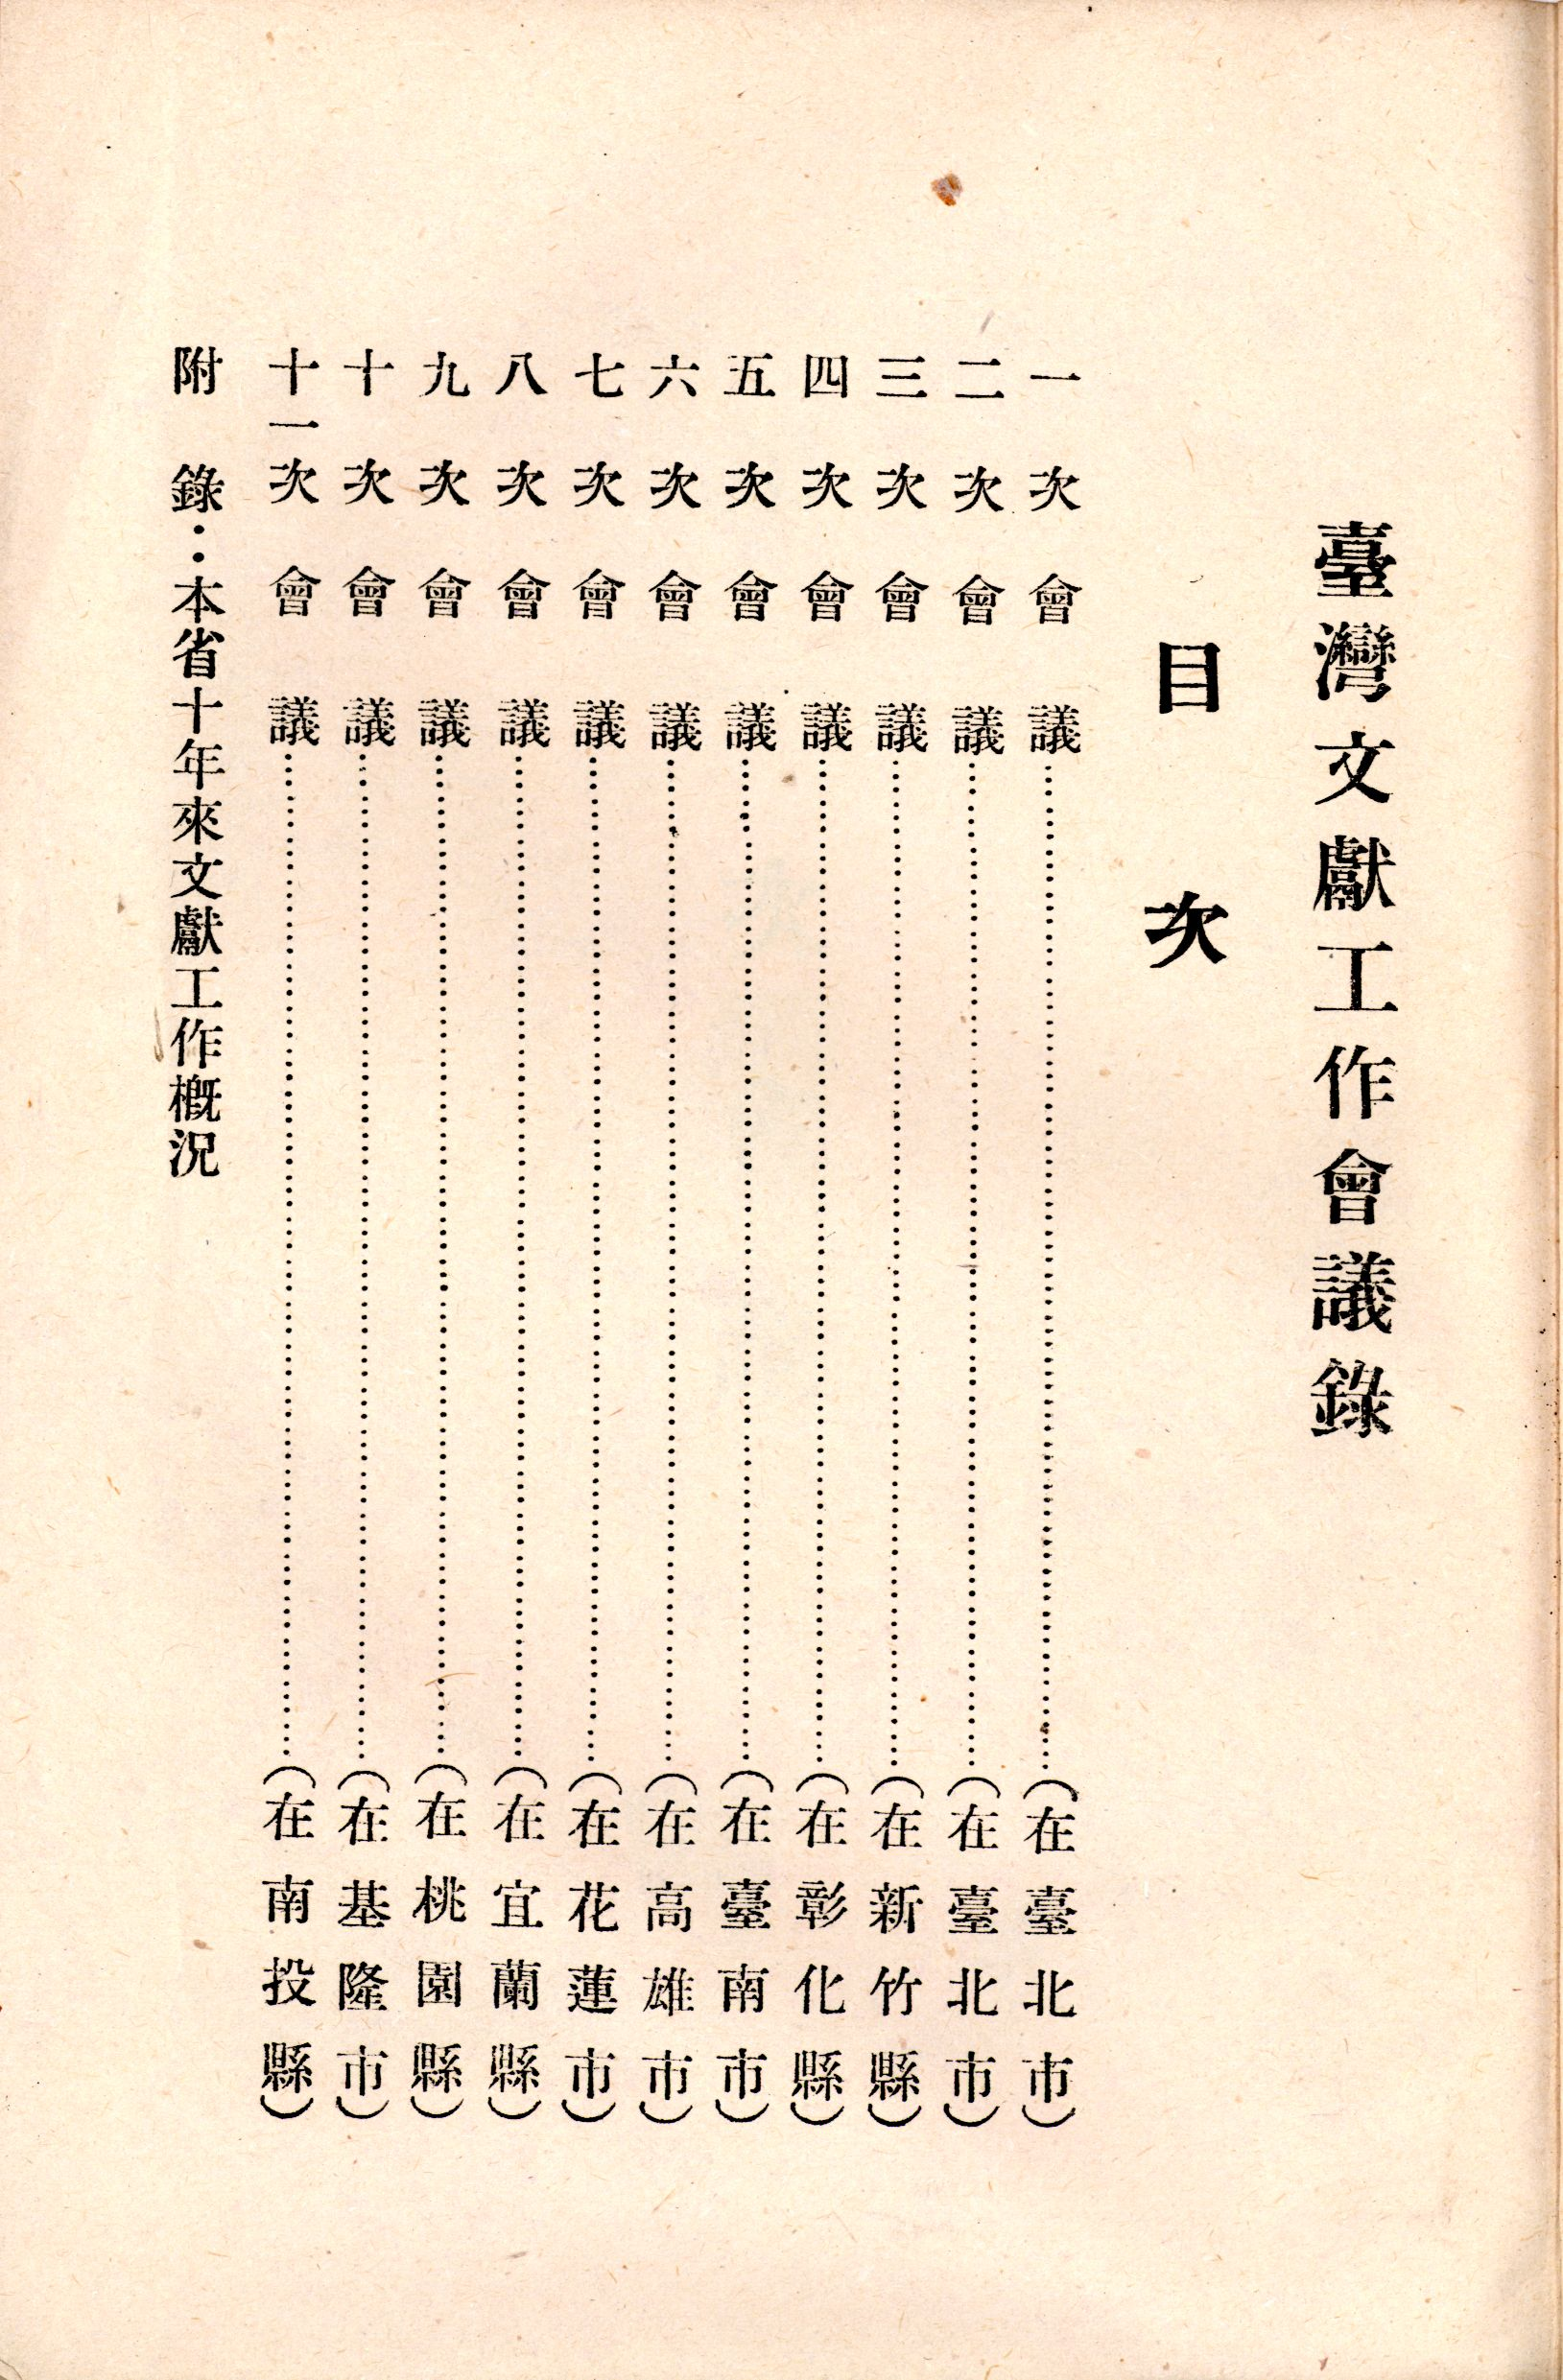 臺灣文獻工作會議錄
目次
一次會議……………………（在臺北市）
二次會議……………………（在臺北市）
三次會議……………………（在新竹縣）
四次會議……………………（在彰化縣）
五次會議……………………（在臺南市）
六次會議……………………（在高雄市）
七次會議……………………（在花蓮市）
八次會議……………………（在宜蘭縣）
九次會議……………………（在桃園縣）
十次會議……………………（在基隆市）
十一次會議……………………（在南投縣）
附錄：本省十年來文獻工作概況